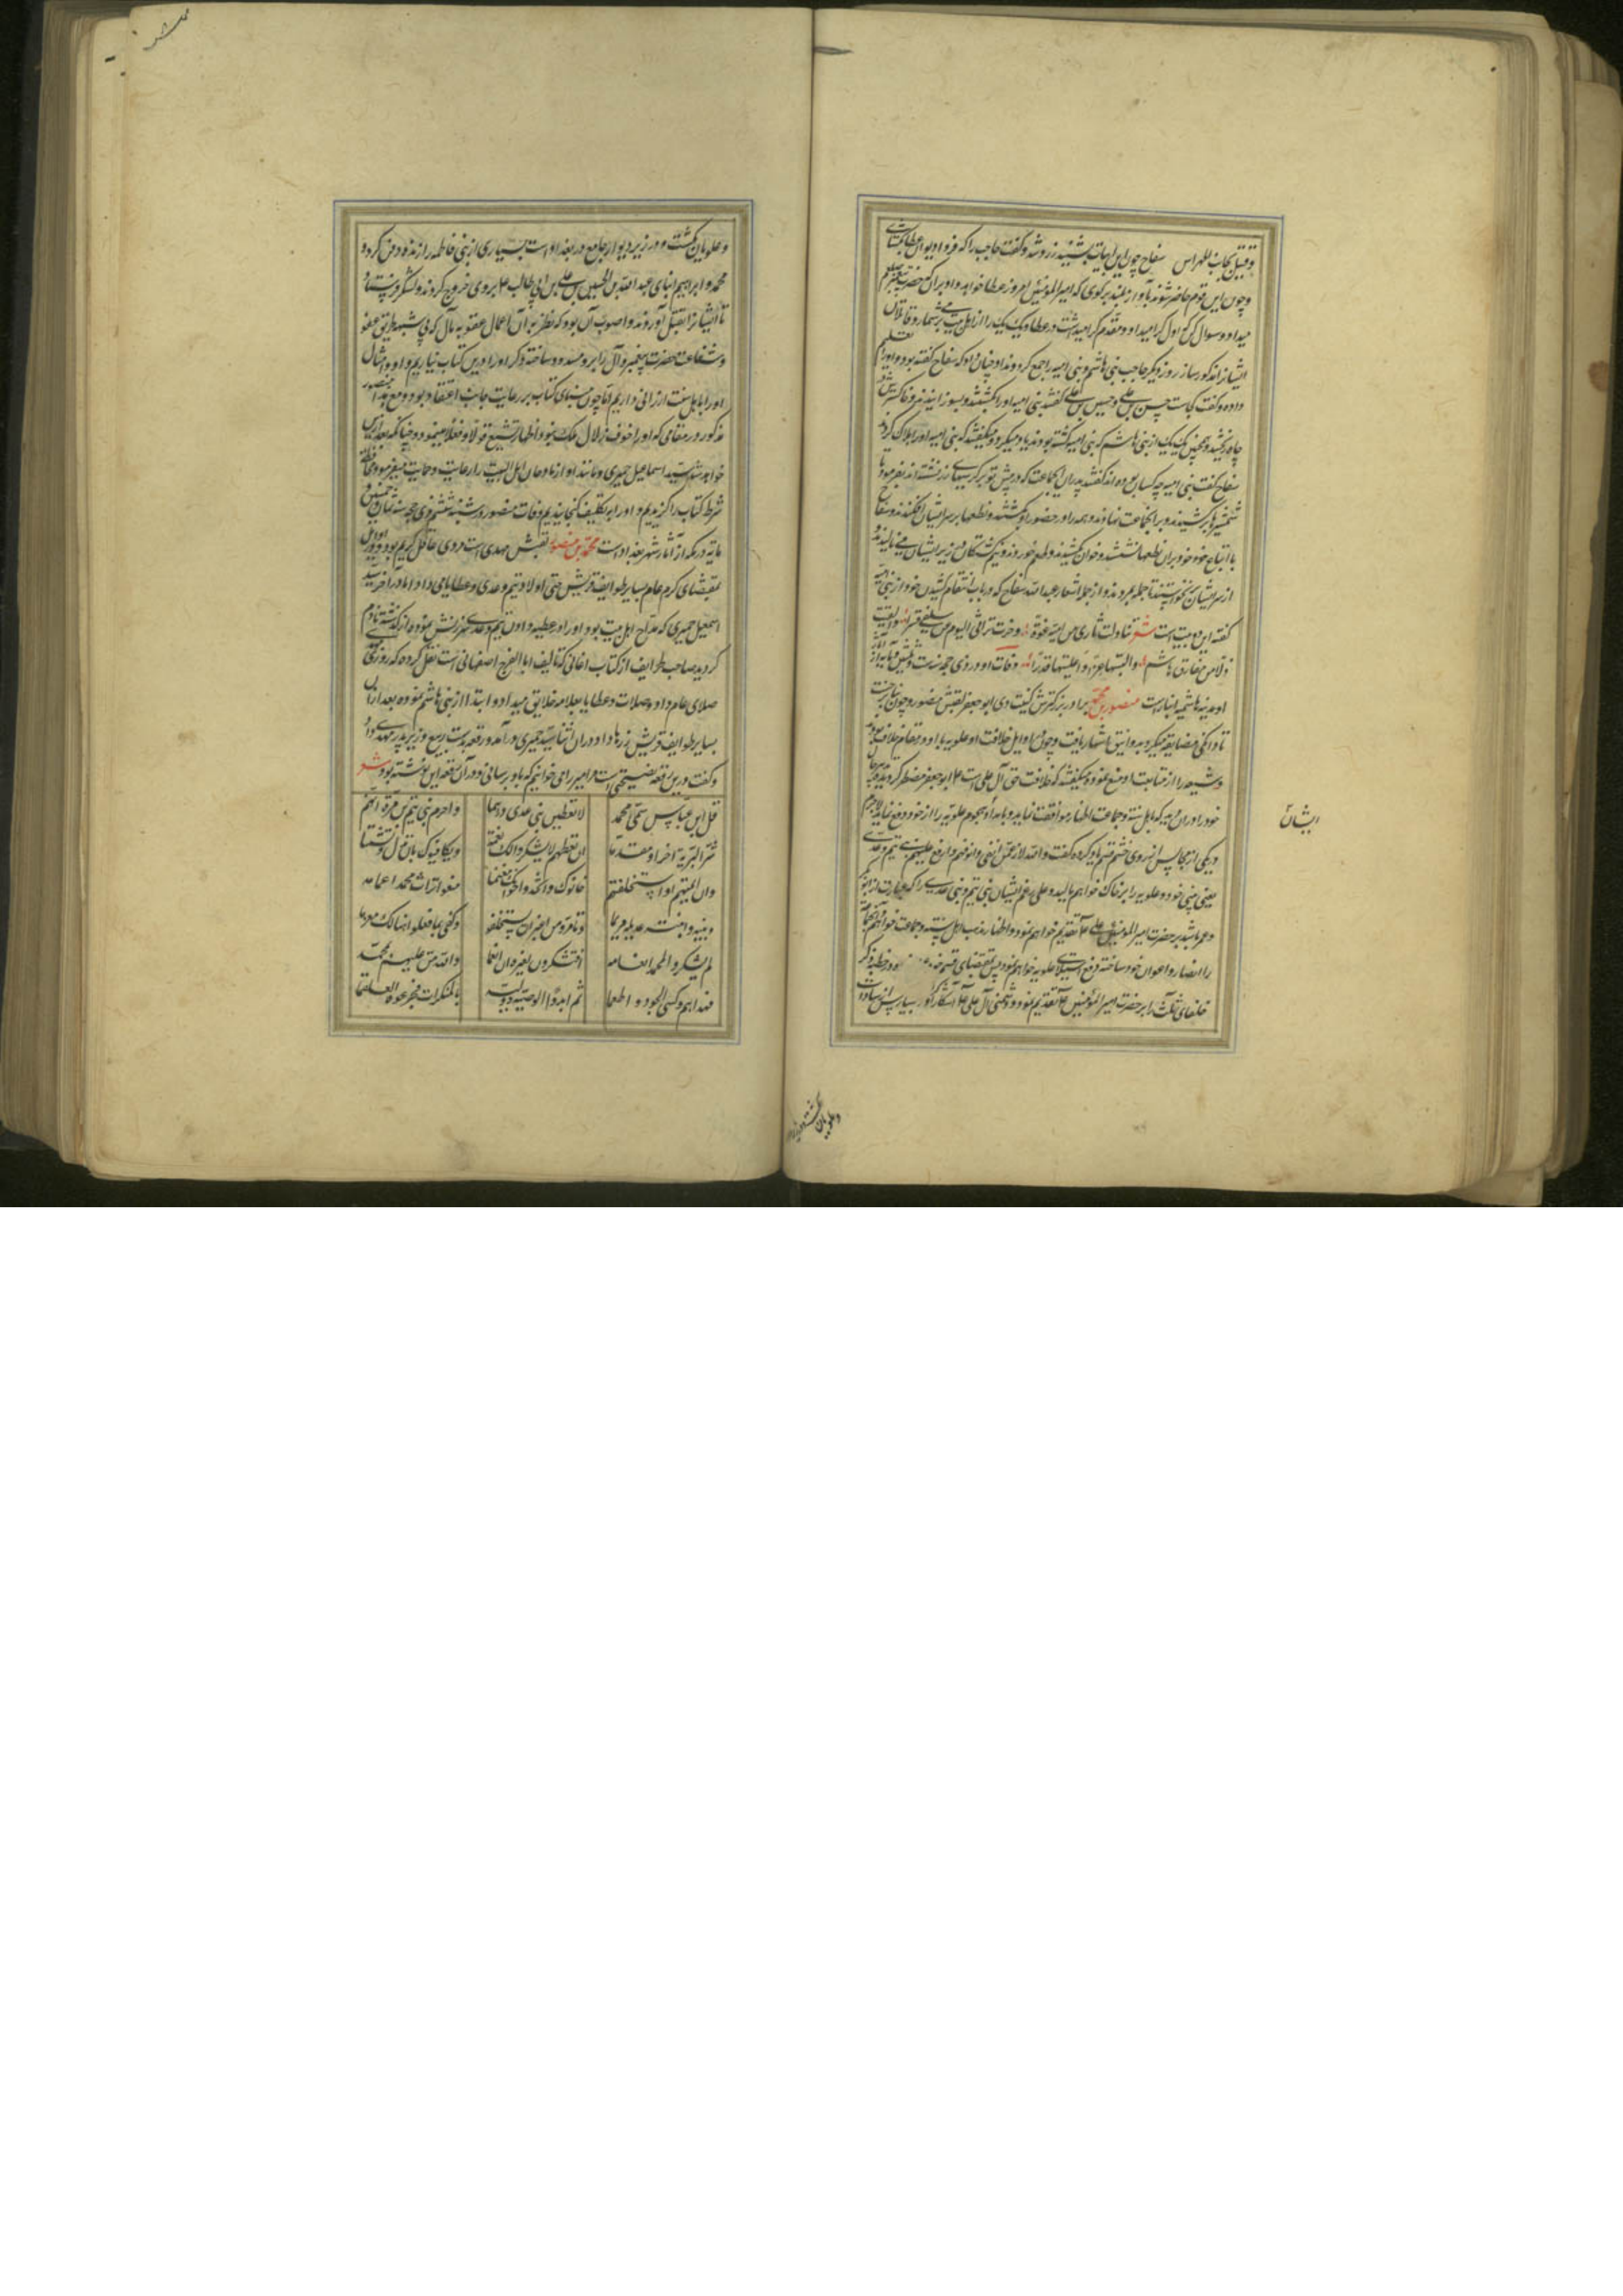 وقتیل بجانب المهراس سفاح چون این ابیات بشنید زرد شد و گفت حاجب را که فردا دیوان عطا بگشای
و چون این قوم حاضر شوند بآواز بلند بر کوی که امیرالمؤمنین امروز عطا خواهد داد بر آن که حضرت پیغمبر صلعم
میداد و سوال کن که اول کرا میداد و مقدم کرا میداشت در عطا و یک یک را از اهل بیت می شمار و قاتلان
ایشانرا مذکور ساز روز دیگر حاجب بنی هاشم و بنی امیه را جمع کردند او چنان داد که سفاح گفته بود و او را تعلیم
داده و گفت کجاست حسین بن علی گفتند بنی امیه او را بکشتند و بسوزانیدند و خاکسترش در
چاه ریختند و همچنین یک یک از بنی هاشم که بنی امیه کشته بودند یاد میکرد و میگفتند که بنی امیه او را هلاک کردند
سفاح گفت بنی امیه چه کسان بوده اند گفتند پدران این جماعت که در پیش تو بر کرسیهای زر نشسته اند بفرمود تا
شمشیرها برکشیدند و بر آنجماعت نهادند و همه را در حضور او بکشتند و نطعها بر سر ایشان افکندند و سفاح
با اتباع خود بر آن نطعها نشستند و خوان کشیدند و طعام خوردند و نیم کشتگان در زیر ایشان می نالیدند و
از سر ایشان برنخواستند تا جمله بمردند و از جمله اشعار عبدالله سفاح که در باب انتقام کشیدن خود از بنی امیه
گفته این دو بیت است شعر تناولت ثاری من امیة عنوة وحزت تراثی الیوم من سلفی قسرا والقیت
ذلا من مفارق هاشم والبستها عزا واعلیتها قدرا وفات او در روزی حجه سنه ست و ثلثین و مایه از آثار
او مدینه هاشمیه انبار است منصور بن محمد برادر بزرگترش کنیت وی ابو جعفر لقبش منصور و چون بنا بر خست
تا دانگی مضایقه میکرد به دوانیقی اشتهار یافت و چون در اوایل خلافت او علویه با او در مقام خلاف بودند
و شیعه را از متابعت او منع نموده میگفتند که خلافت حق آل علی است ابو جعفر مضطر گردیده صلاح
خود را در آن دید که با اهل سنة و جماعت اظهار موافقت نماید و بامداد هجوم علویه را از خود دفع نماید لاجرم
در یکی از مجالس از روی خشم قسم یاد کرده گفت والله لارغمن انفی وانوفهم وارفع علیهم بنی تیم وعدی
یعنی بینی خود و علویه را بر خاک خواهم مالید و علی رغم ایشان بنی تیم و بنی عدی را که عبارت از ابوبکر
و عمر باشد بر حضرت امیرالمومنین علی تقدیم خواهم نمود و اظهار مذهب اهل سنت و جماعت خواهم نمود
را انصار و اعوان خود ساخته دفع استیلای علویه خواهم نمود پس بمقتضای قسم خود در خطبه ذکر
خلفای ثلث را بر حضرت امیرالمؤمنین تقدیم نمود و دشمنی آل علی آشکارا کرد و بسیار پس از سادات
ایشان
و علویان
و علویان بکشت و در زیر دیوار جامع در بغداد است بسیاری از بنی فاطمه را زنده دفن کرد و
محمد و ابراهیم ابنای عبدالله بن الحسن بن علی بن ابی طالب بر وی خروج کردند و لشکر فرستاد
تا ایشانرا بقتل آورند و اصوب آن بود که نظر به آن اعمال عقوبة مآل که بی شبهه طریق عفو
و شفاعت حضرت پیغمبر و آل را برو مسدود ساخته ذکر او را در این کتاب نیاریم و او و امثال
او را باهل سنت ارزانی داریم اما چون مبنای کتاب بر رعایت جانب اعتقاد بود و مع هذا منصور
مذکور در مقامی که او را خوف زوال ملک نبود اظهار تشیع قولا و فعلا مینمود و چنانکه بعد ازین
خواهد شد سید اسماعیل حمیری و مانند او از مادحان اهل البیت را رعایت و حمایت میفرمود محافظت
شرط کتاب را گزیدیم و او را به تکلیف گنجانیدیم وفات منصور در شنبه ششم ذی حجه سنه ثمان و خمسین و
مایة در مکه از آثارش شهر بغداد است محمد بن منصور لقبش مهدی است مردی عاقل کریم بود و در اوایل
بمقتضای کرم عام بسایر طوایف قریش حتی اولاد تیم و عدی و عطایا می داد اما در آخر سید
اسمعیل حمیری که مداح اهل بیت بود او را در عطیه دادن تیم و عدی سرزنش نموده از گذشته نادم
گردید صاحب طرایف از کتاب اغانی که تالیف ابا الفرج اصفهانی است نقل کرده که روزی مهدی
صلای عام داد و صلات و عطایا بعامه خلایق میداد و ابتدا از بنی هاشم نموده بعد از آن
بسایر طوایف قریش زرها داد در آن اثنا سید حمیری در آمد و رقعه بدست ربیع وزیر پدر مهدی داد
و گفت درین رقعه نصیحتی است مر امیر را می خواهم که باو برسانی و در آن رقعه این نوشته بود شعر
قل لابن عباس سمی محمد لا تعطین بنی عدی درهما
واحرم بنی تیم بن مرة انهم شر البریة آخرا ومقدما
ان تعطهم لا یشکروا لک نعمة ویکافیوک بان تذل وتشتما
وان ائتمنتهم او استخلفتهم خانوک واتخذوا خراجک مغنما
منعوا تراث محمد اعمامه وبنیه وابنته عدیلة مریما
وتامروا من غیر ان یستخلفوا وکفی بما فعلوا هنالک مغرما
لم یشکروا لمحمد انعامه افیشکرون لغیره ان انعما
والله من علیهم بمحمد وهداهم وکسی الجنوب واطعما
ثم انبروا لوصیه وولیه بالمنکرات فجرعوه العلقما